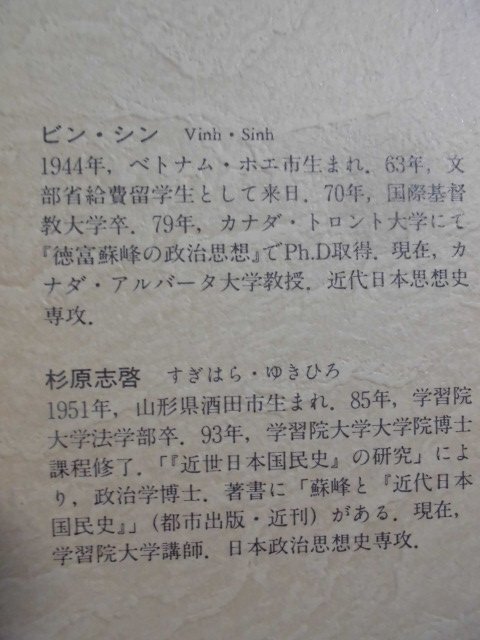 ビン・シン　Vinh・Sinh
1944年，ベトナム・ホエ市生まれ．63年，文
部省給費留学生として来日．70年，国際基督
教大学卒．79年，カナダ・トロント大学にて
『徳富蘇峰の政治思想』でPh.D取得．現在，カ
ナダ・アルバータ大学教授．近代日本思想史
専攻．
杉原志啓　すぎはら・ゆきひろ
1951年，山形県酒田市生まれ．85年，学習院
大学法学部卒．93年，学習院大学大学院博士
課程修了．「『近世日本国民史』の研究」によ
り，政治学博士．著書に「蘇峰と『近代日本
国民史』」（都市出版・近刊）がある．現在，
学習院大学講師．日本政治思想史専攻．